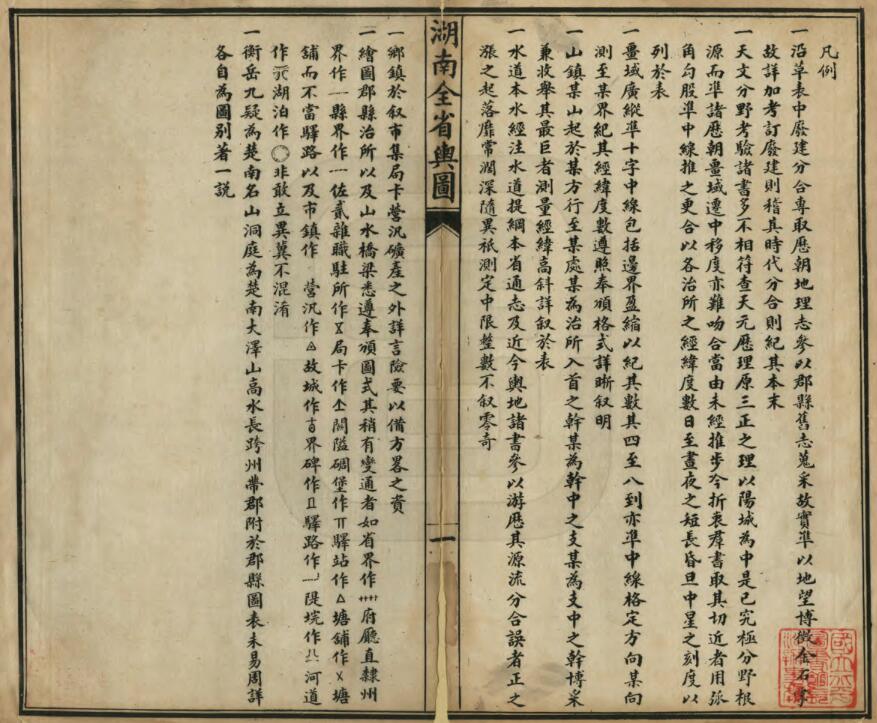 凡例
一沿革表中廢建分合專取歷朝地理志參以郡縣舊志蒐采故實準以地望博徵金石
故詳加考訂廢建則稽其時代分合則紀其本末
一天文分野考驗諸書多不相符查天元歷理原三正之理以陽城為中是已究極分野根
源而準諸歷朝疆域遷中移度亦難吻合當由未經推步今折衷羣書取其切近者用弧
角勾股準中線推之更合以各治所之經緯度數日至晝夜之短長昏旦中星之刻度以
列於表
一疆域廣縱準十字中線包括邊界盈縮以紀其數其四至八到亦準中線格定方向某向
測至某界紀其經緯度數遵照奉頒格式詳晰叙明
一山鎮某山起於某方行至某處某為治所入首之幹某為幹中之支某為支中之幹博采
兼收舉其最巨者測量經緯高斜詳叙於表
一水道本水經注水道提綱本省通志及近今輿地諸書參以游歷其源流分合誤者正之
漲之起落靡常濶深隨異祇測定中限整數不叙零奇
湖南全省輿圖
一
一鄉鎮於叙市集局卡營汛礦產之外詳言險要以備方畧之資
一繪圖郡縣治所以及山水橋梁悉遵奉頒圖式其稍有變通者如省界作府廳直隸州
界作縣界作佐貳雜職駐所作局卡作關隘碉堡作驛站作△塘鋪作塘
鋪而不當驛路以及市鎮作營汛作故城作界碑作驛路作隄垸作河道
作湖泊作〇非敢立異冀不混淆
一衡岳九疑為楚南名山洞庭為楚南大澤山高水長跨州帶郡附於郡縣圖表未易周詳
各自為圖別著一說